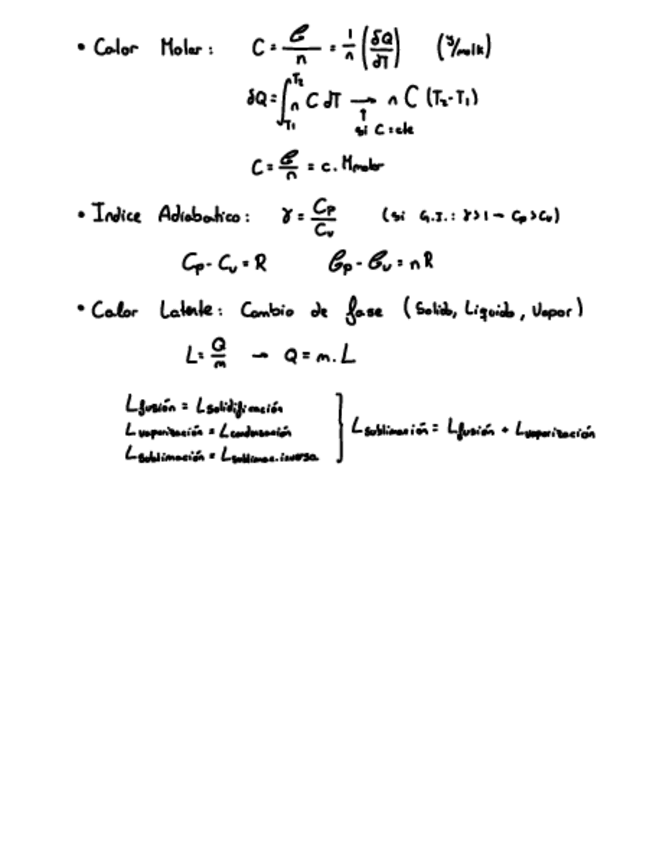 • Calor Molar: C = 𝒞/n = 1/n (δQ/dT) (J/molK)
δQ = ∫_T1^T2 n C dT → n C (T₂-T₁)
↑
si C = cte
C = 𝒞/n = c. Mmolar
• Indice Adiabatico: γ = Cp/Cv (si G.I.: γ>1 → Cp>Cv)
Cp - Cv = R 𝒞p - 𝒞v = nR
• Calor Latente: Cambio de fase (Solido, Liquido, Vapor)
L = Q/m → Q = m. L
Lfusión = Lsolidificación
Lvaporización = Lcondensación } Lsublimación = Lfusión + Lvaporización
Lsublimación = Lsublimac. inversa